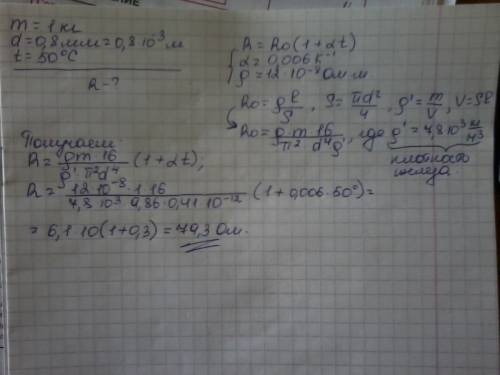 m = 1 кг
d = 0,8 мм = 0,8·10⁻³ м
t = 50°C
R - ?
R = R₀(1 + αt)
α = 0,006 K⁻¹
ρ = 12·10⁻⁸ Ом·м
R₀ = ρ l/S, S = πd²/4, ρ' = m/V, V = Sl
R₀ = ρ m 16 / π² d⁴ ρ', где ρ' = 7,8·10³ кг/м³
плотность железа.
Получаем
R = ρm 16 / ρ' π² d⁴ (1 + αt);
R = 12·10⁻⁸·1·16 / 7,8·10³·9,86·0,41·10⁻¹² (1 + 0,006·50°) =
= 6,1·10(1 + 0,3) = 79,3 Ом.